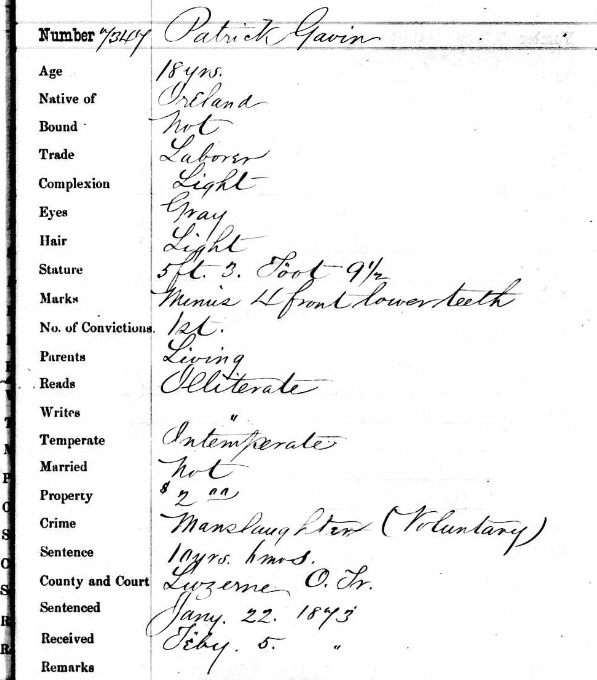 Number 7347 Patrick Gavin
Age 18 yrs.
Native of Ireland
Bound Not
Trade Laborer
Complexion Light
Eyes Gray
Hair Light
Stature 5 ft. 3. Foot 9 1/2
Marks Minus 4 front lower teeth
No. of Convictions. 1st.
Parents Living
Reads Illiterate
Writes "
Temperate Intemperate
Married Not
Property $2 00
Crime Manslaughter (Voluntary)
Sentence yrs. 6 mos.
County and Court Luzerne O. Tr.
Sentenced Jany. 22. 1873
Received Feby. 5. "
Remarks